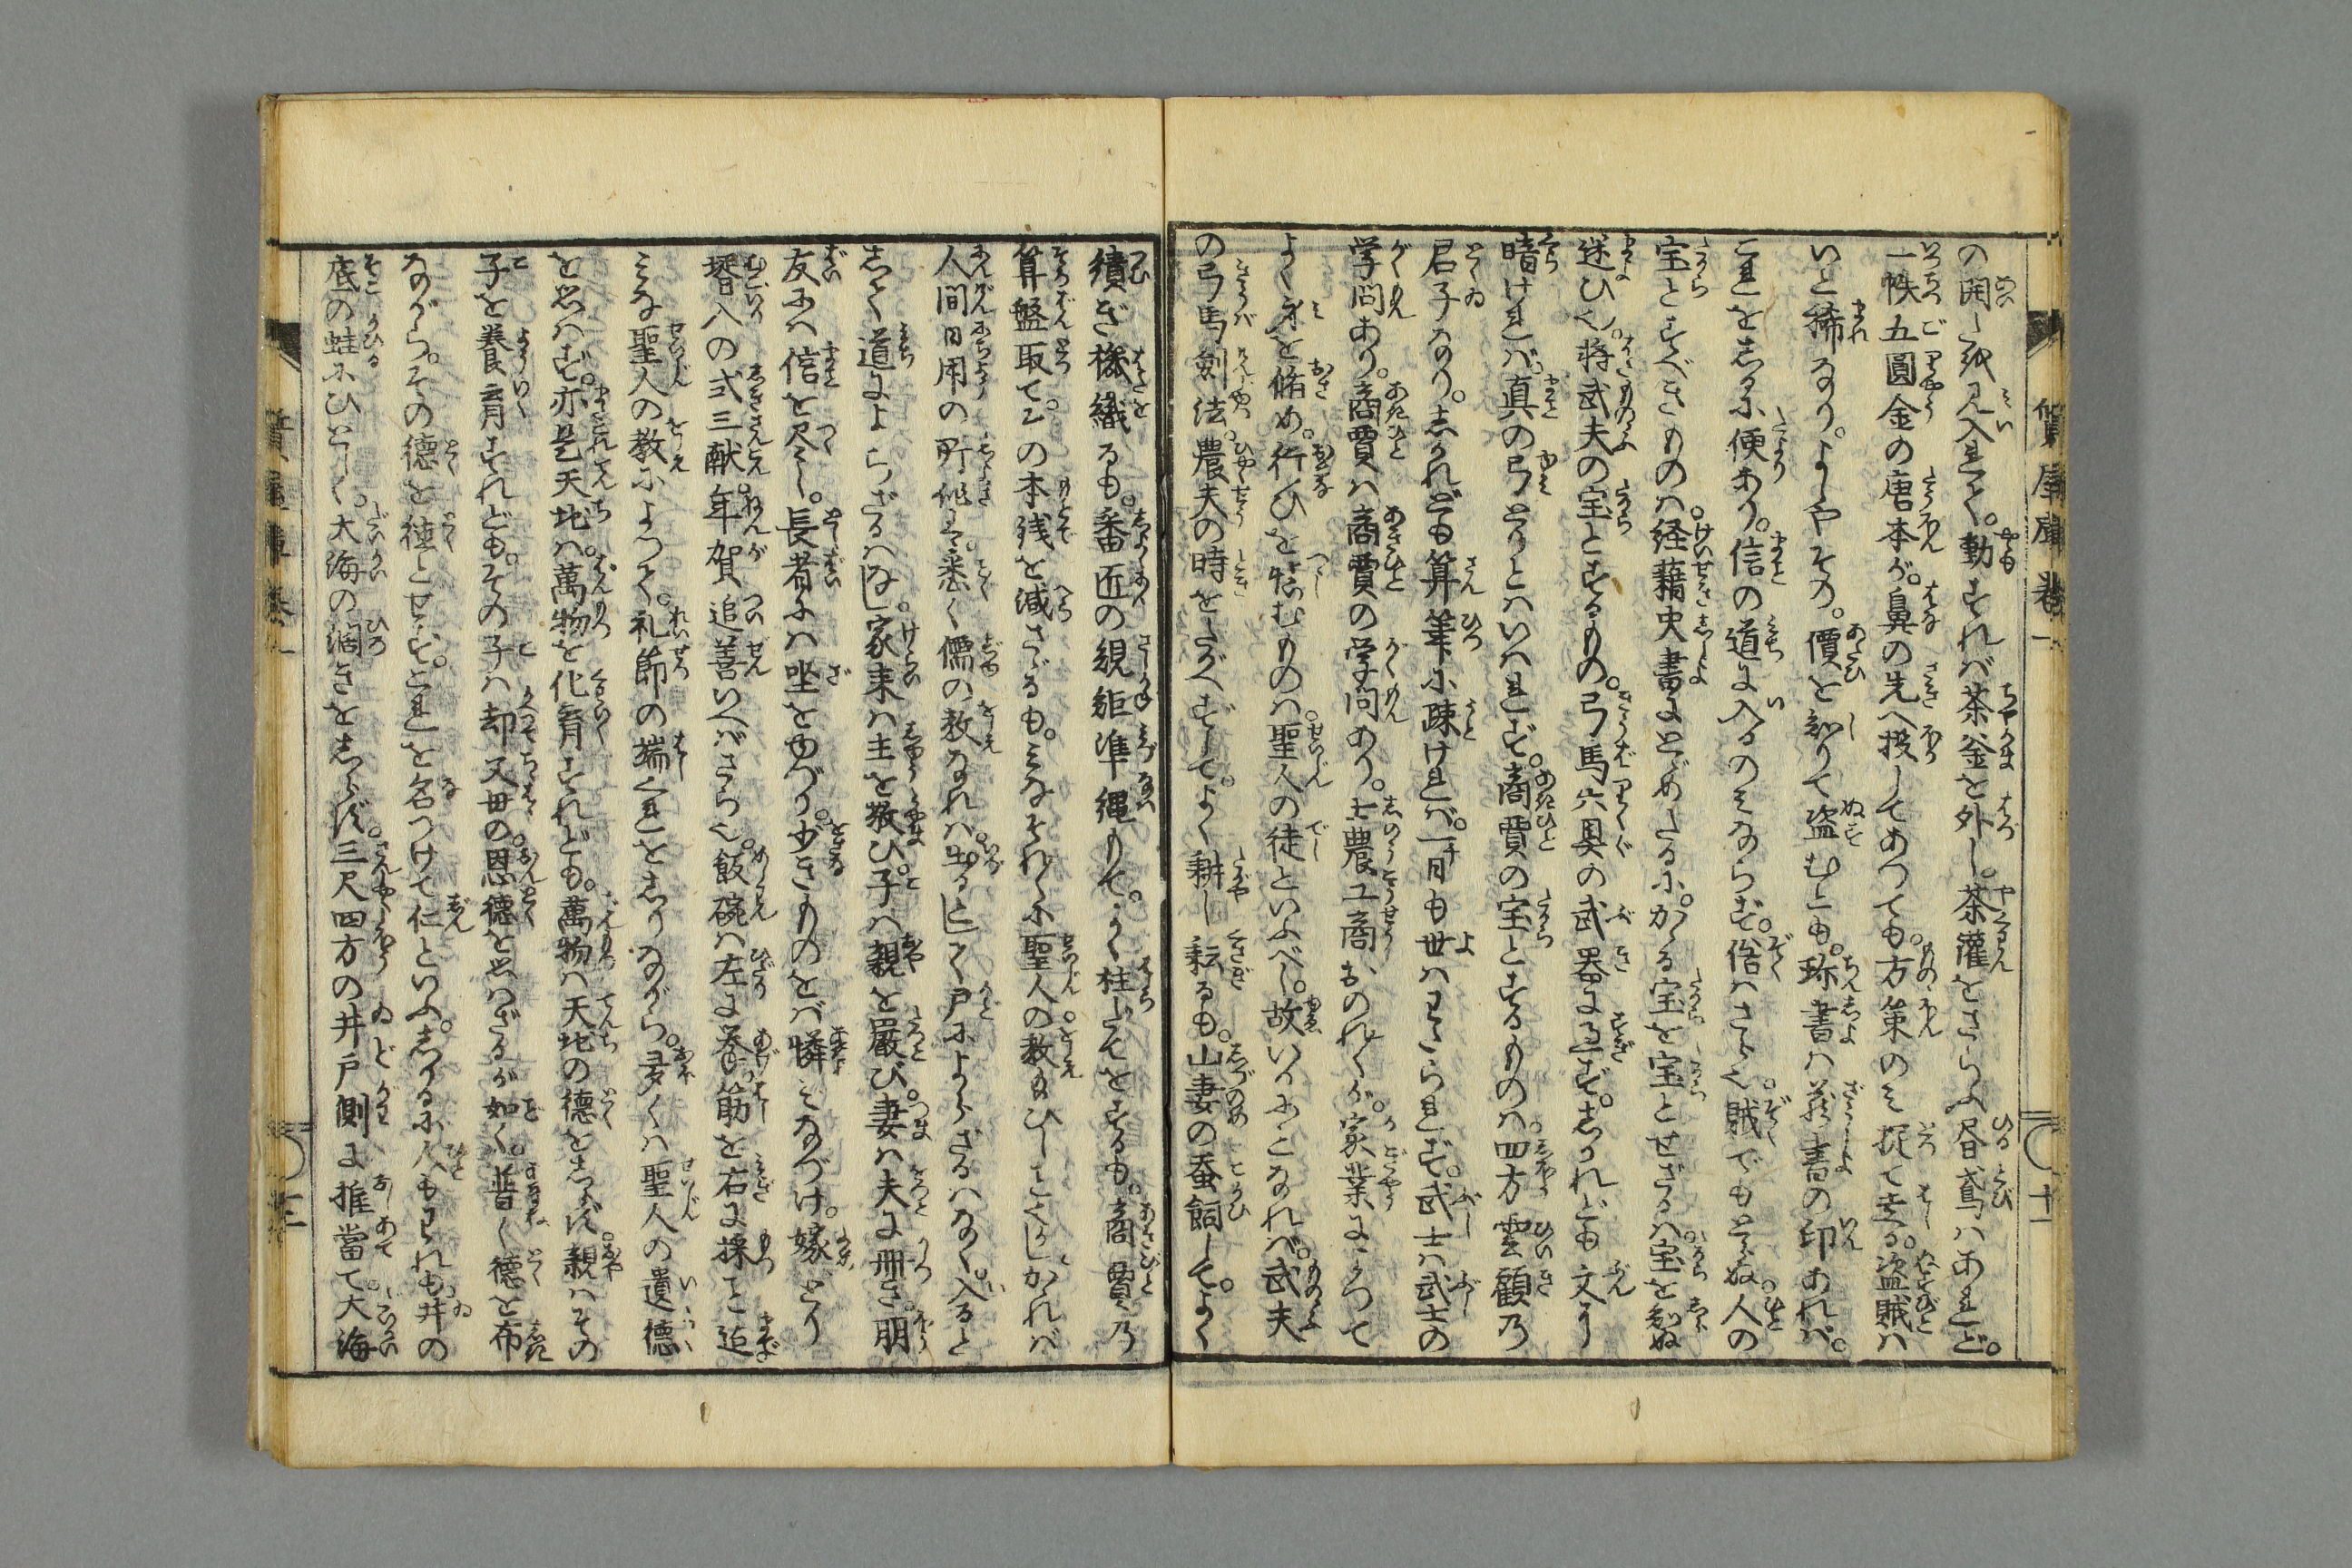 の開た處へ入れて。動すれば茶釜を外し。茶灌をさらふ昼鳶はあれど。
一帙五圓金の唐本が。鼻の先へ投してあつても。方策のみ捉て走る。盗賊は
いと稀なり。よしやその。價を知りて盗むとも。珎書は蔵書の印あれば。
これをしるに便あり。信の道に入るのみならず。俗はさら也。賊でもとらぬ。人の
宝とすべきものは。経籍史書にとゞめたるに。かゝる宝を宝とせざるは。宝を知ぬ
迷ひ也。将武夫の宝とするもの。弓馬六具の武器に過ず。しかれども文に
暗ければ。真の弓とりとはいはれず。商賈の宝とするものは。四方雲顧乃
君子なり。しかれども算筆に疎ければ。一日も世はわたられず。武士は武士の
学問あり。商賈は商賈の学問あり。士農工商、おのれ〳〵が。家業によつて
よく身を脩め。行ひを慎むものは。聖人の徒といふべし。故いかにとなれば。武夫
の弓馬剣法。農夫の時をたがへずして。よく耕し耘るも。山妻の蚕飼して。よく
績ぎ機織るも。番匠の規矩準縄もて。よく柱たてをするも。商賈乃
算盤取て。の本銭を減さゞるも。みなそれ〳〵に聖人の教もひしことしかれば
人間日用の所作は。悉く儒の教なれば。出るとして戸によらざるはなく。入ると
して道によらざるはなし。家来は主を敬ひ。子は親を厳び。妻は夫に冊き。朋
友には信を尽し。長者には坐をゆづり。少きものをば憐みなづけ。嫁どり
壻入の式三献。年賀追善いへばさら也。飯碗は左に巻。筋を右に採こと迄
みな聖人の教によつて。礼節の端くれをしりながら。多くは聖人の遺徳
を思はず。亦是天地は。萬物を化育すれども。萬物は天地の徳をしらず。親はその
子を養育すれども。その子は却父母の。恩徳を思はざるが如く。普く徳を布
ながら。その徳を徳とせず。これを名つけて仁といふ。しかるに人もわれも。井の
底の蛙にひとしく。大海の濶きをしらず。三尺四方の井戸側に推當て。大海
質屋庫巻一
十一